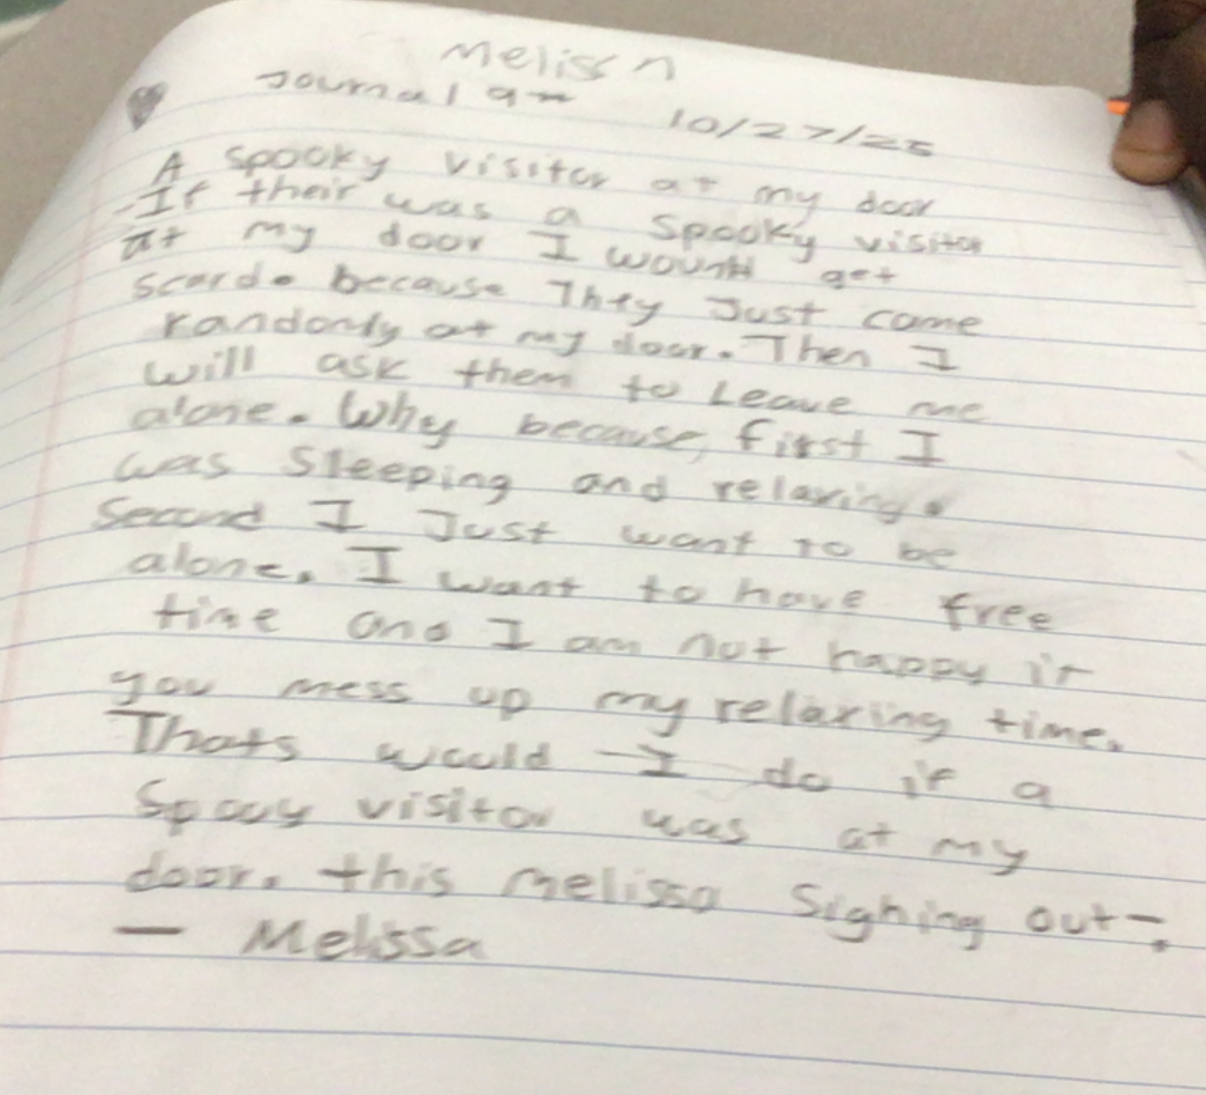 Melissa
Journal 9
10/27/25
A spooky visitor at my door
If their was a spooky visitor
at my door I wount get
scard. because They Just came
randonly at my door. Then I
will ask them to Leave me
alone. Why because, first I
was Sleeping and relaxing.
Second I Just want to be
alone. I want to have free
time and I am not happy if
you mess up my relaxing time.
Thats would I do if a
Spooy visitor was at my
door. this melissa Signing out-.
— Melissa